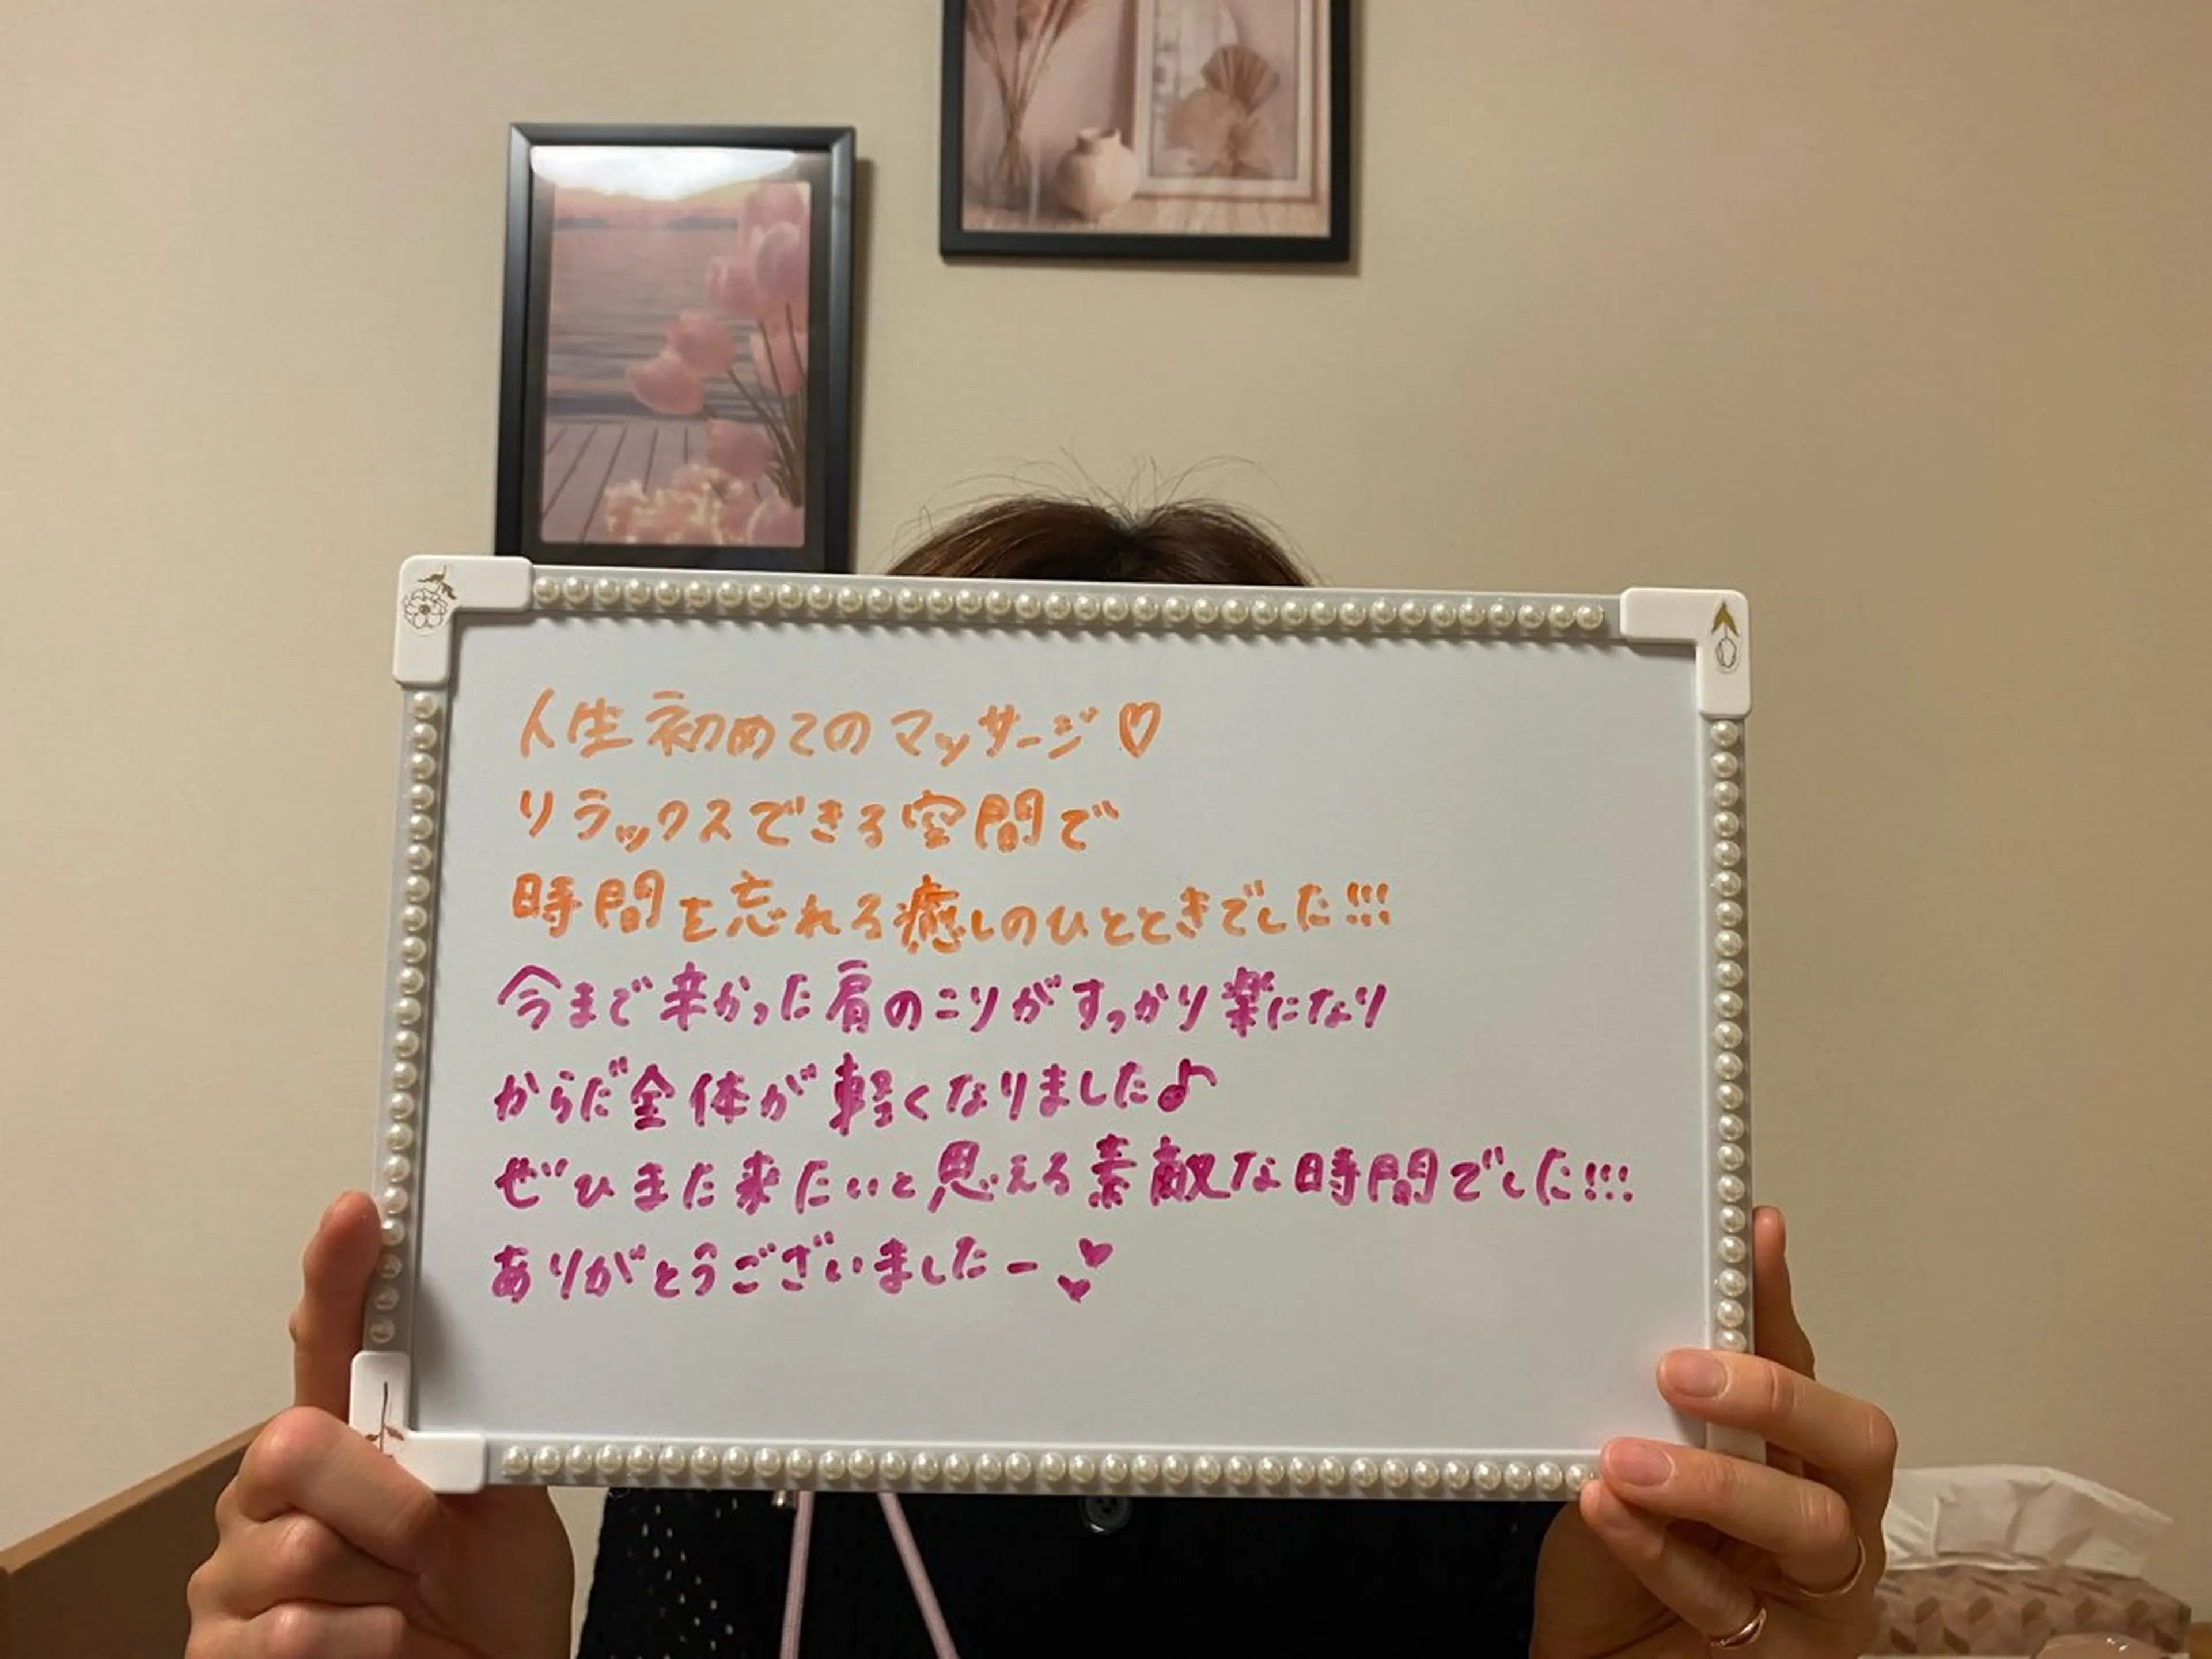 人生初めてのマッサージ♡
リラックスできる空間で
時間を忘れる癒しのひとときでした!!!
今まで辛かった肩のこりがすっかり楽になり
からだ全体が軽くなりました♪
ぜひまた来たいと思える素敵な時間でした!!!
ありがとうございましたー♥♥